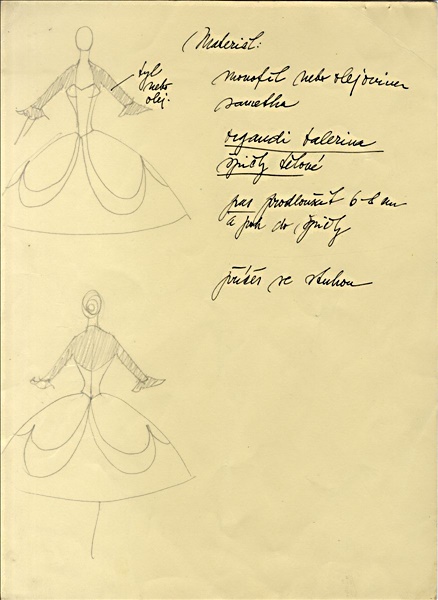 Materiál:
tyl
nebo
olej.
monofil nebo olejovina
sametka
organdi balerina
špičky tělové
pas prodloužit 6-8 cm
a pak do špičky
příčes se stuhou